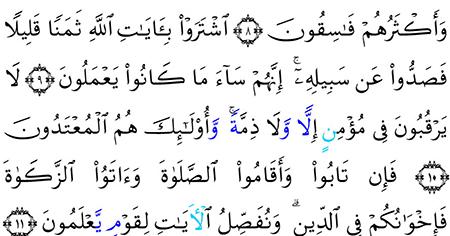 وَأَكْثَرُهُمْ فَـٰسِقُونَ ﴿٨﴾ ٱشْتَرَوْا۟ بِـَٔايَـٰتِ ٱللَّهِ ثَمَنًا قَلِيلًا
فَصَدُّوا۟ عَن سَبِيلِهِۦٓ ۚ إِنَّهُمْ سَآءَ مَا كَانُوا۟ يَعْمَلُونَ ﴿٩﴾ لَا
يَرْقُبُونَ فِى مُؤْمِنٍ إِلًّا وَلَا ذِمَّةً ۚ وَأُو۟لَـٰٓئِكَ هُمُ ٱلْمُعْتَدُونَ
﴿١٠﴾ فَإِن تَابُوا۟ وَأَقَامُوا۟ ٱلصَّلَوٰةَ وَءَاتَوُا۟ ٱلزَّكَوٰةَ
فَإِخْوَٰنُكُمْ فِى ٱلدِّينِ ۗ وَنُفَصِّلُ ٱلْـَٔايَـٰتِ لِقَوْمٍ يَعْلَمُونَ ﴿١١﴾